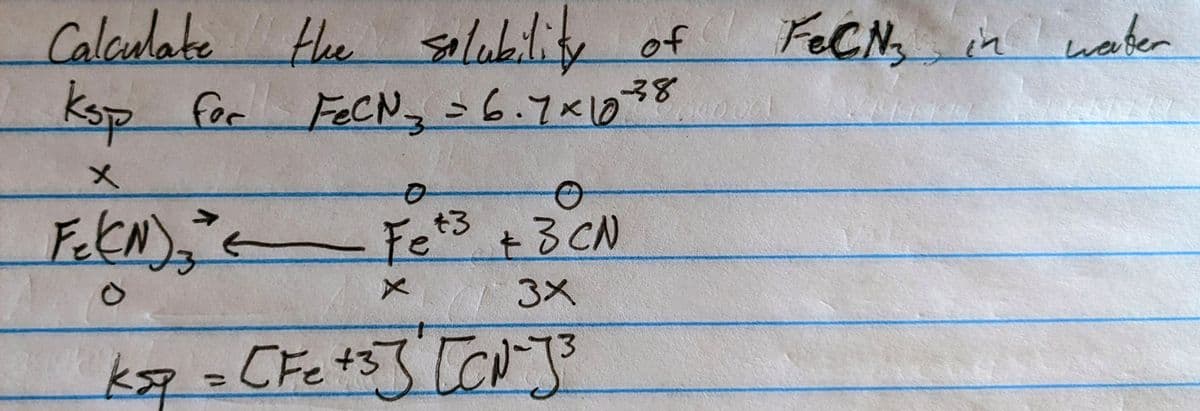 Calculate the solubility of FeCN₃ in water
Ksp for FeCN₃ = 6.7×10⁻³⁸
x
0 0
Fe(CN)₃ ⇄ Fe⁺³ + 3 CN
0 x 3x
Ksp = [Fe⁺³]¹ [CN⁻]³